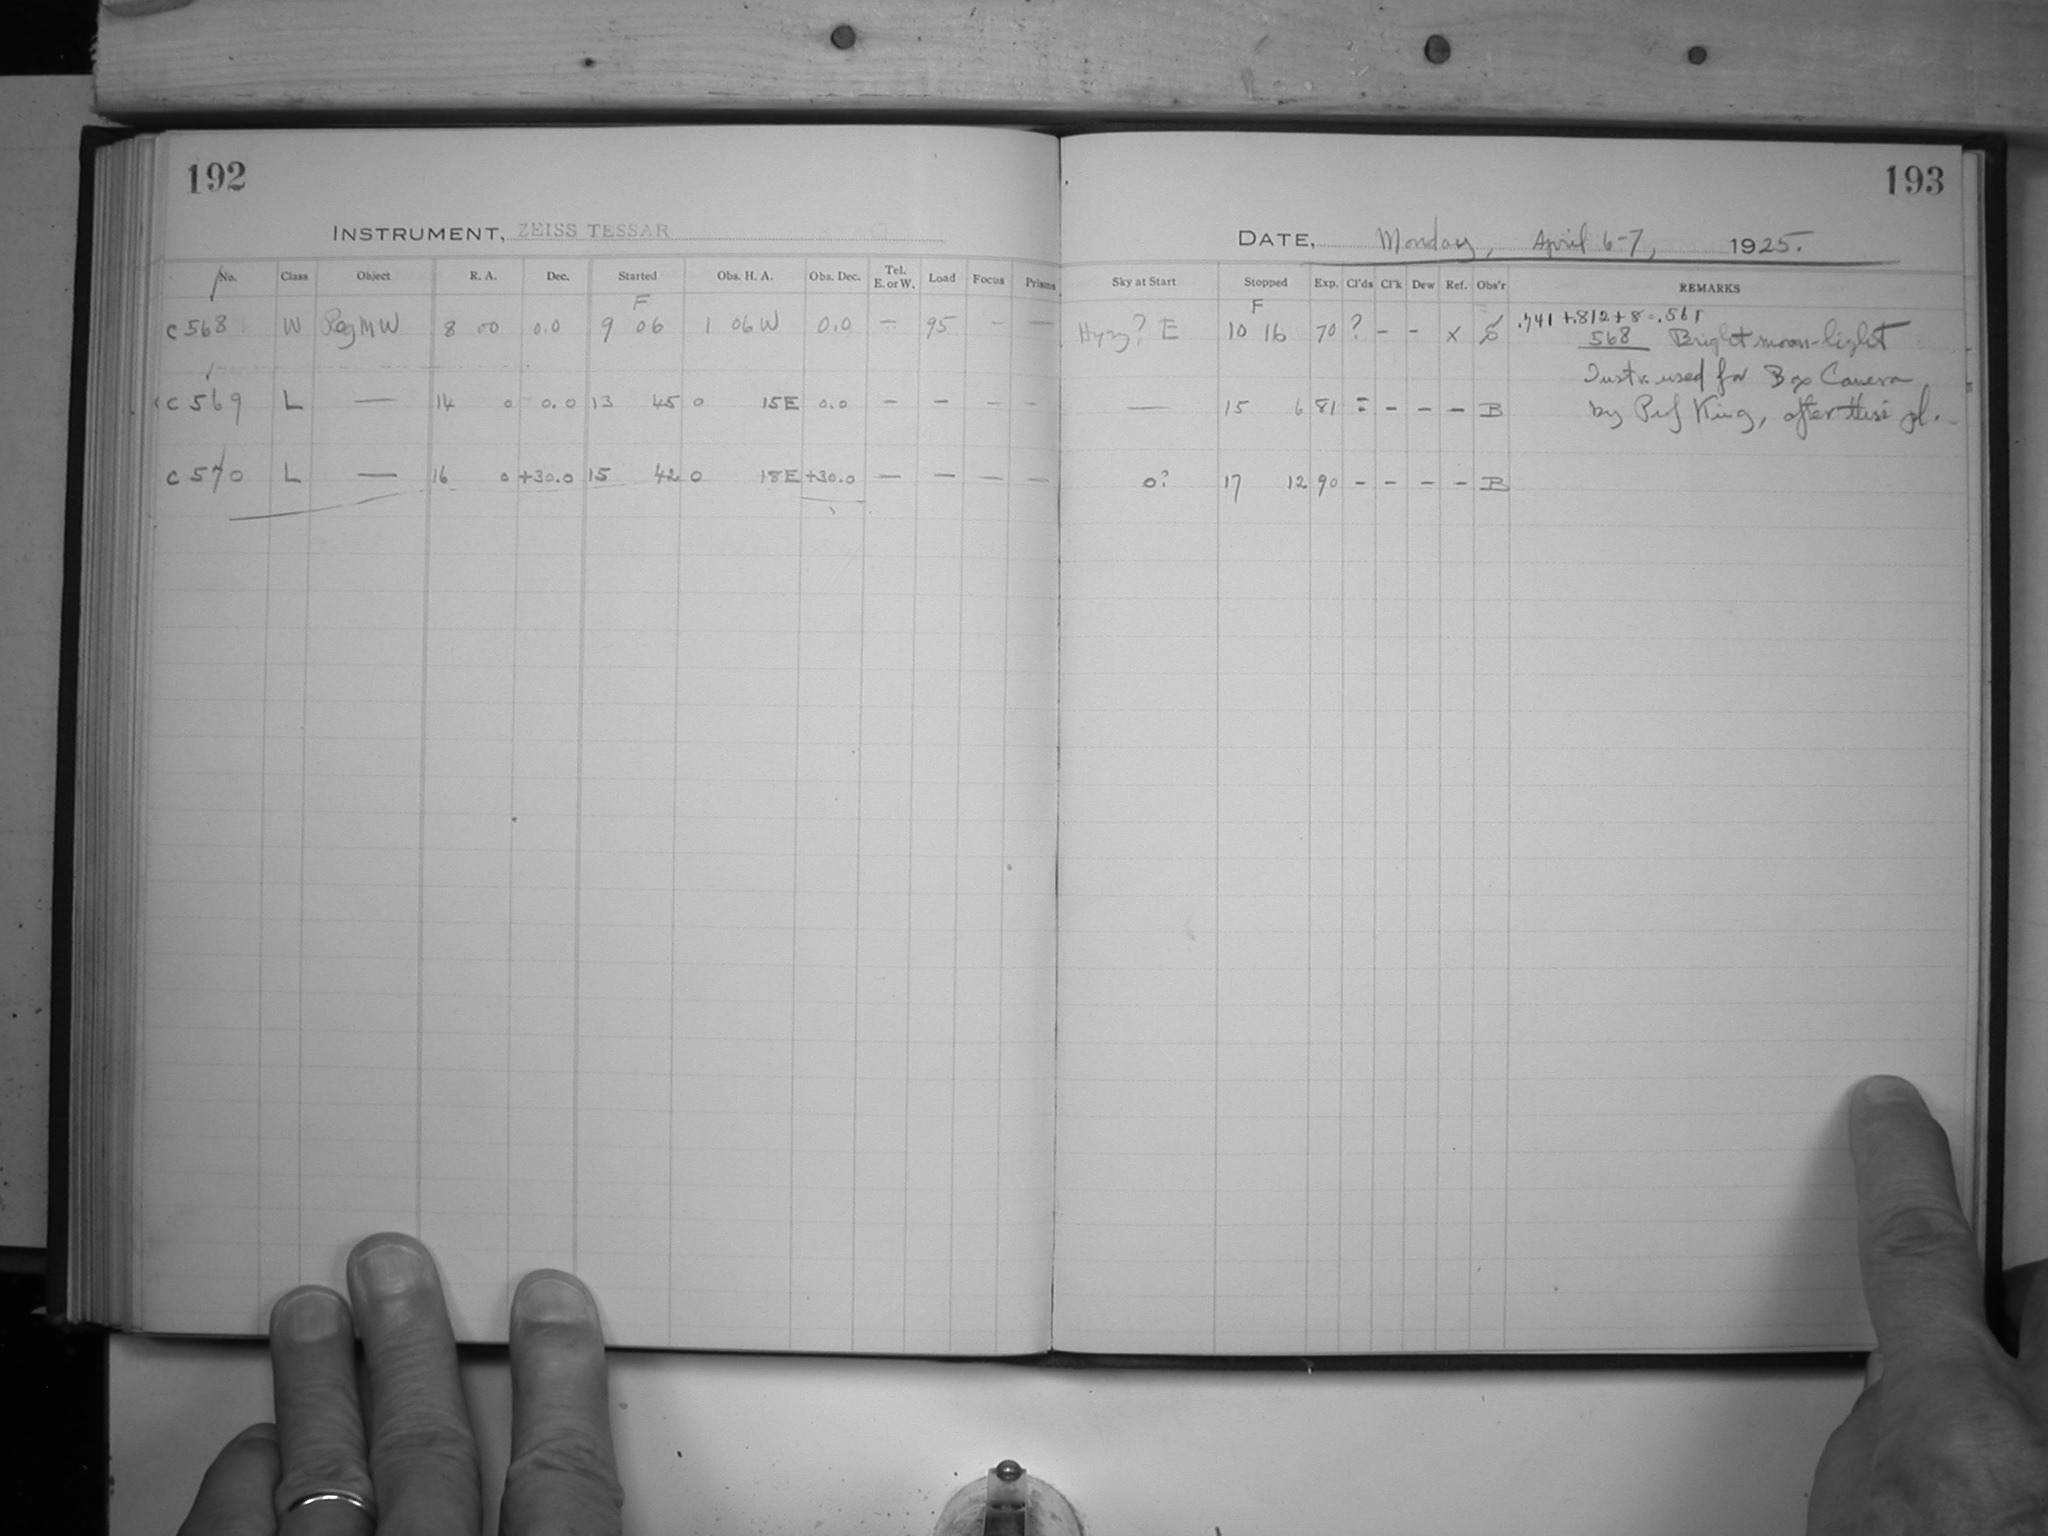 192
193
INSTRUMENT, ZEISS TESSAR
DATE, Monday, April 6-7, 1925.
No. Class Object R. A. Dec. Started Obs. H. A. Obs. Dec. Tel. E. or W. Load Focus Prisms Sky at Start Stopped Exp. Cl'ds Cl'k Dew Ref. Obs'r REMARKS
F F
c 568 W Reg MW 8 00 0.0 9 06 1 06 W 0.0 — 95 — — Hyzy? E 10 16 70 ? - - x S .741 + .812 + 8 = .561
568 Bright moon-light
Instr. used for Box Camera
c 569 L — 14 0 0.0 13 45 0 15E 0.0 — — — — — 15 6 81 - - - B by Prof King, after this pl.
c 570 L — 16 0 +30.0 15 42 0 18E +30.0 — — — — 0? 17 12 90 - - - - B